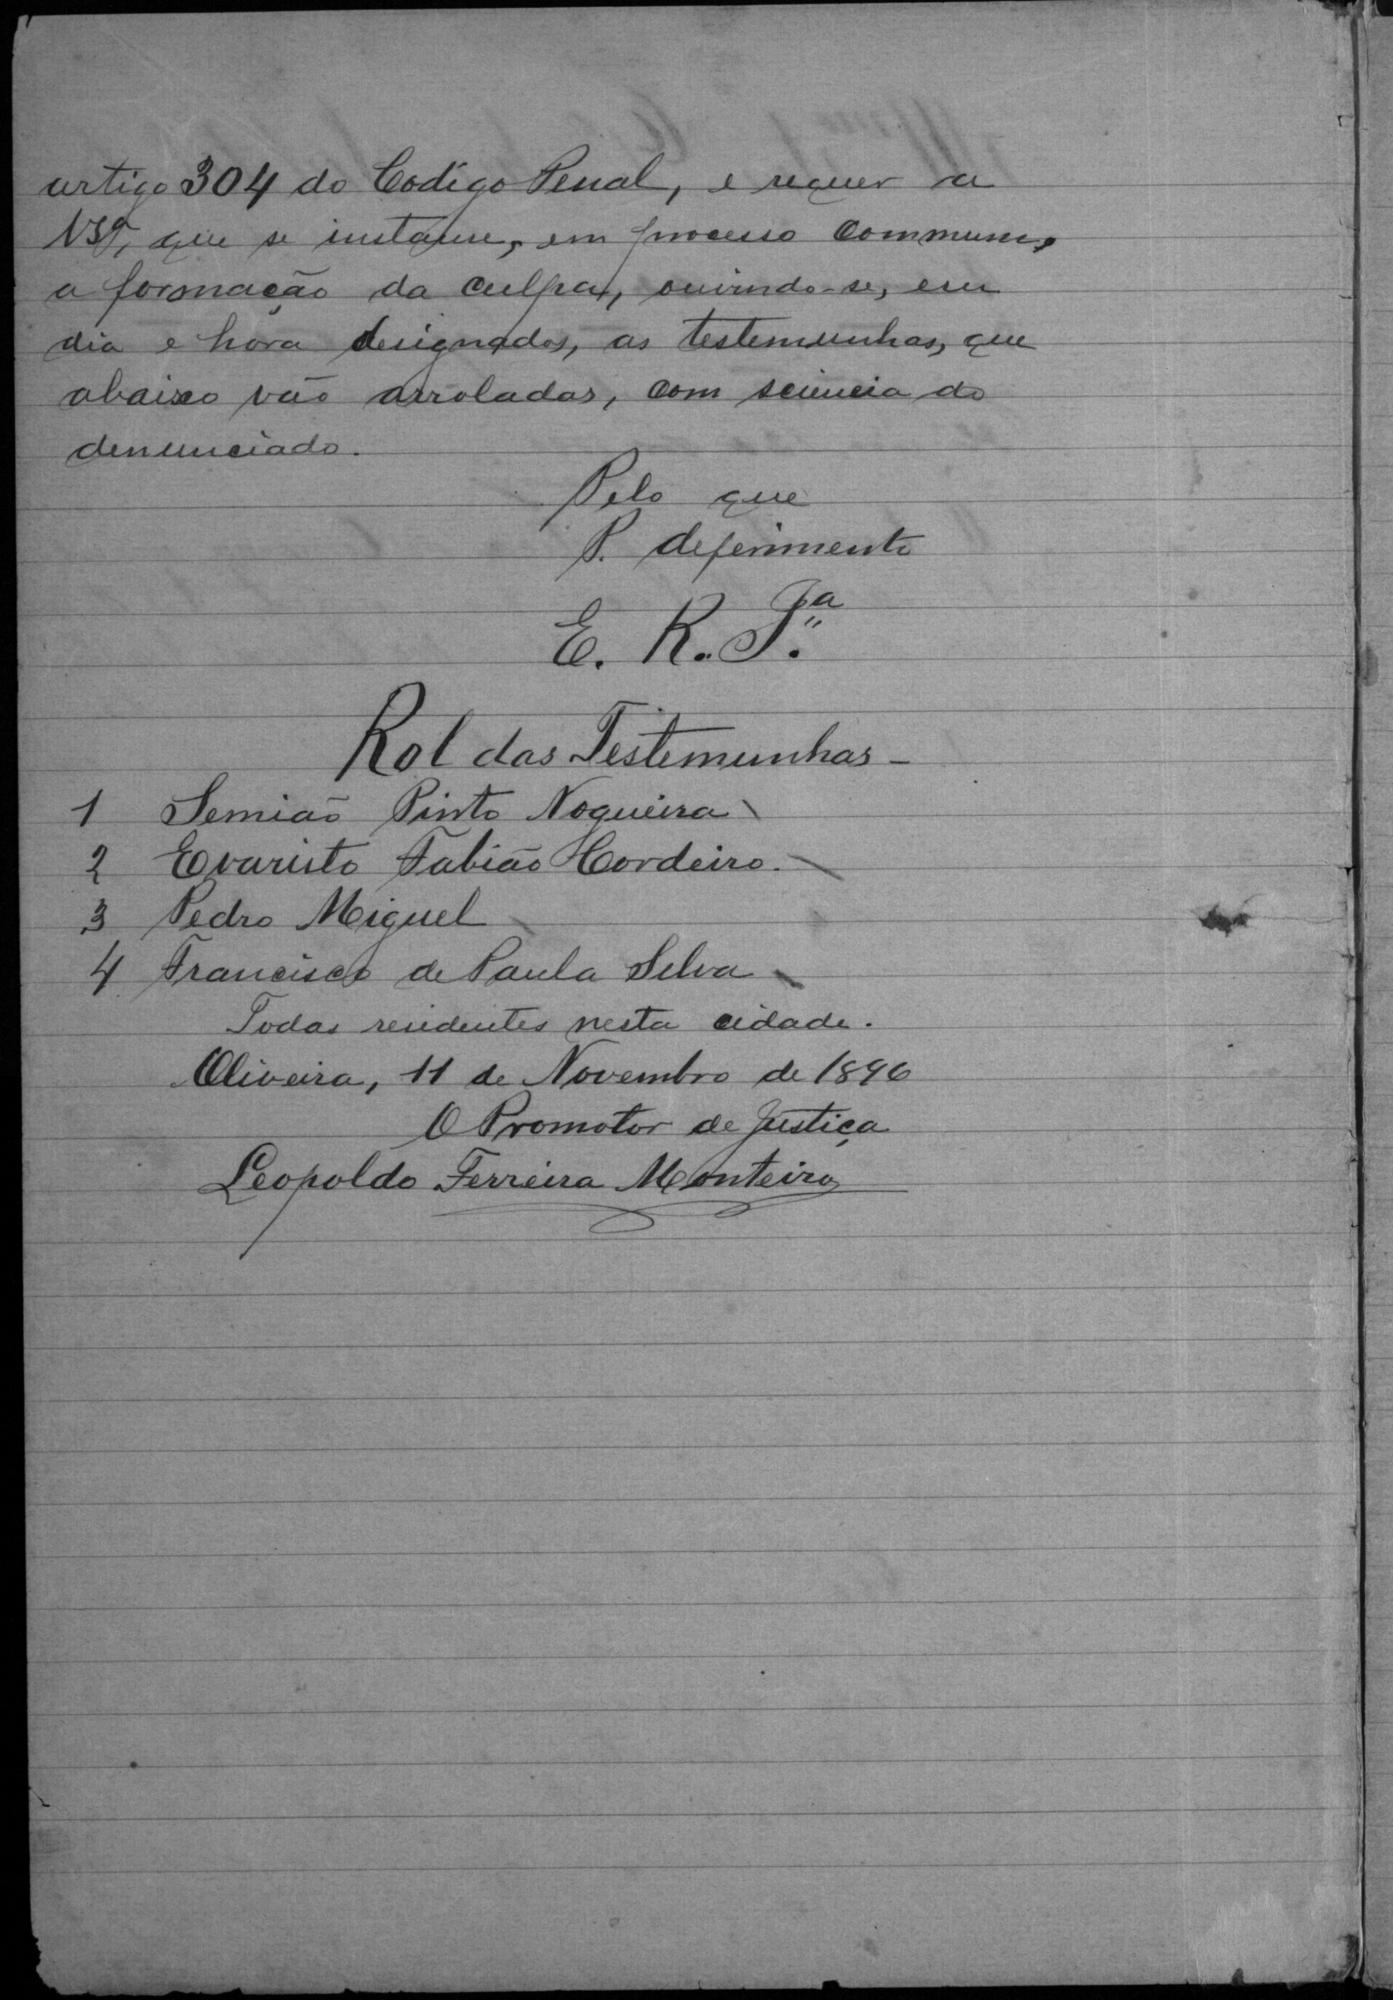 artigo 304 do Codigo Penal, e requer a
VSª, que se instaure, em processo commum,
a formação da culpa, ouvindo-se, em
dia e hora designados, as testemunhas, que
abaixo vão arroladas, com sciencia do
denunciado.
Pelo que
P. deferimento
E. R. Jª.
Rol das Testemunhas -
1 Semião Pinto Nogueira
2 Evaristo Fabião Cordeiro.
3 Pedro Miguel
4 Francisco de Paula Silva
Todas residentes nesta cidade.
Oliveira, 11 de Novembro de 1896
O Promotor de Justiça
Leopoldo Ferreira Monteiro